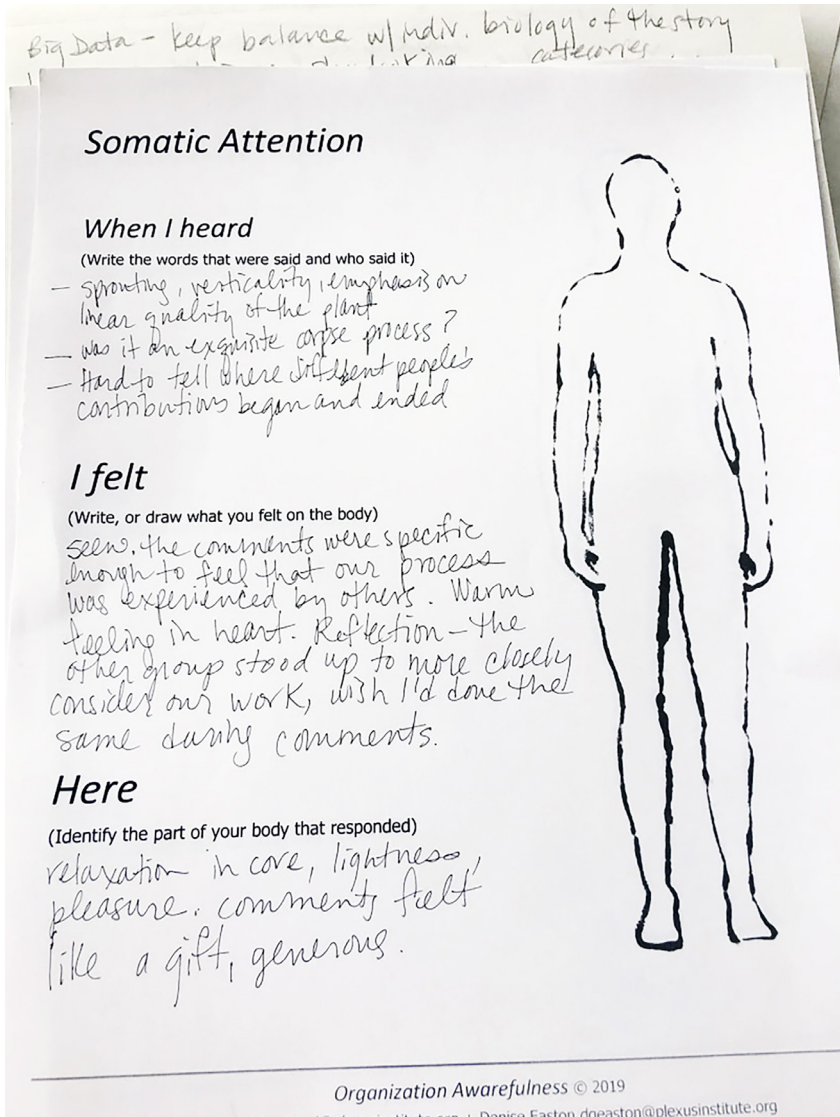 Big Data - keep balance w/indiv. biology of the story
categories
Somatic Attention
When I heard
(Write the words that were said and who said it)
- sprouting, verticality, emphasis on
linear quality of the plant
- was it an exquisite corpse process?
- Hard to tell where different people's
contributions began and ended
I felt
(Write, or draw what you felt on the body)
seen. the comments were specific
enough to feel that our process
was experienced by others. Warm
feeling in heart. Reflection - the
other group stood up to more closely
consider our work, wish I'd done the
same during comments.
Here
(Identify the part of your body that responded)
relaxation in core, lightness,
pleasure. comments felt
like a gift, generous.
Organization Awarefulness © 2019
Denise Easton dgeaston@plexusinstitute.org